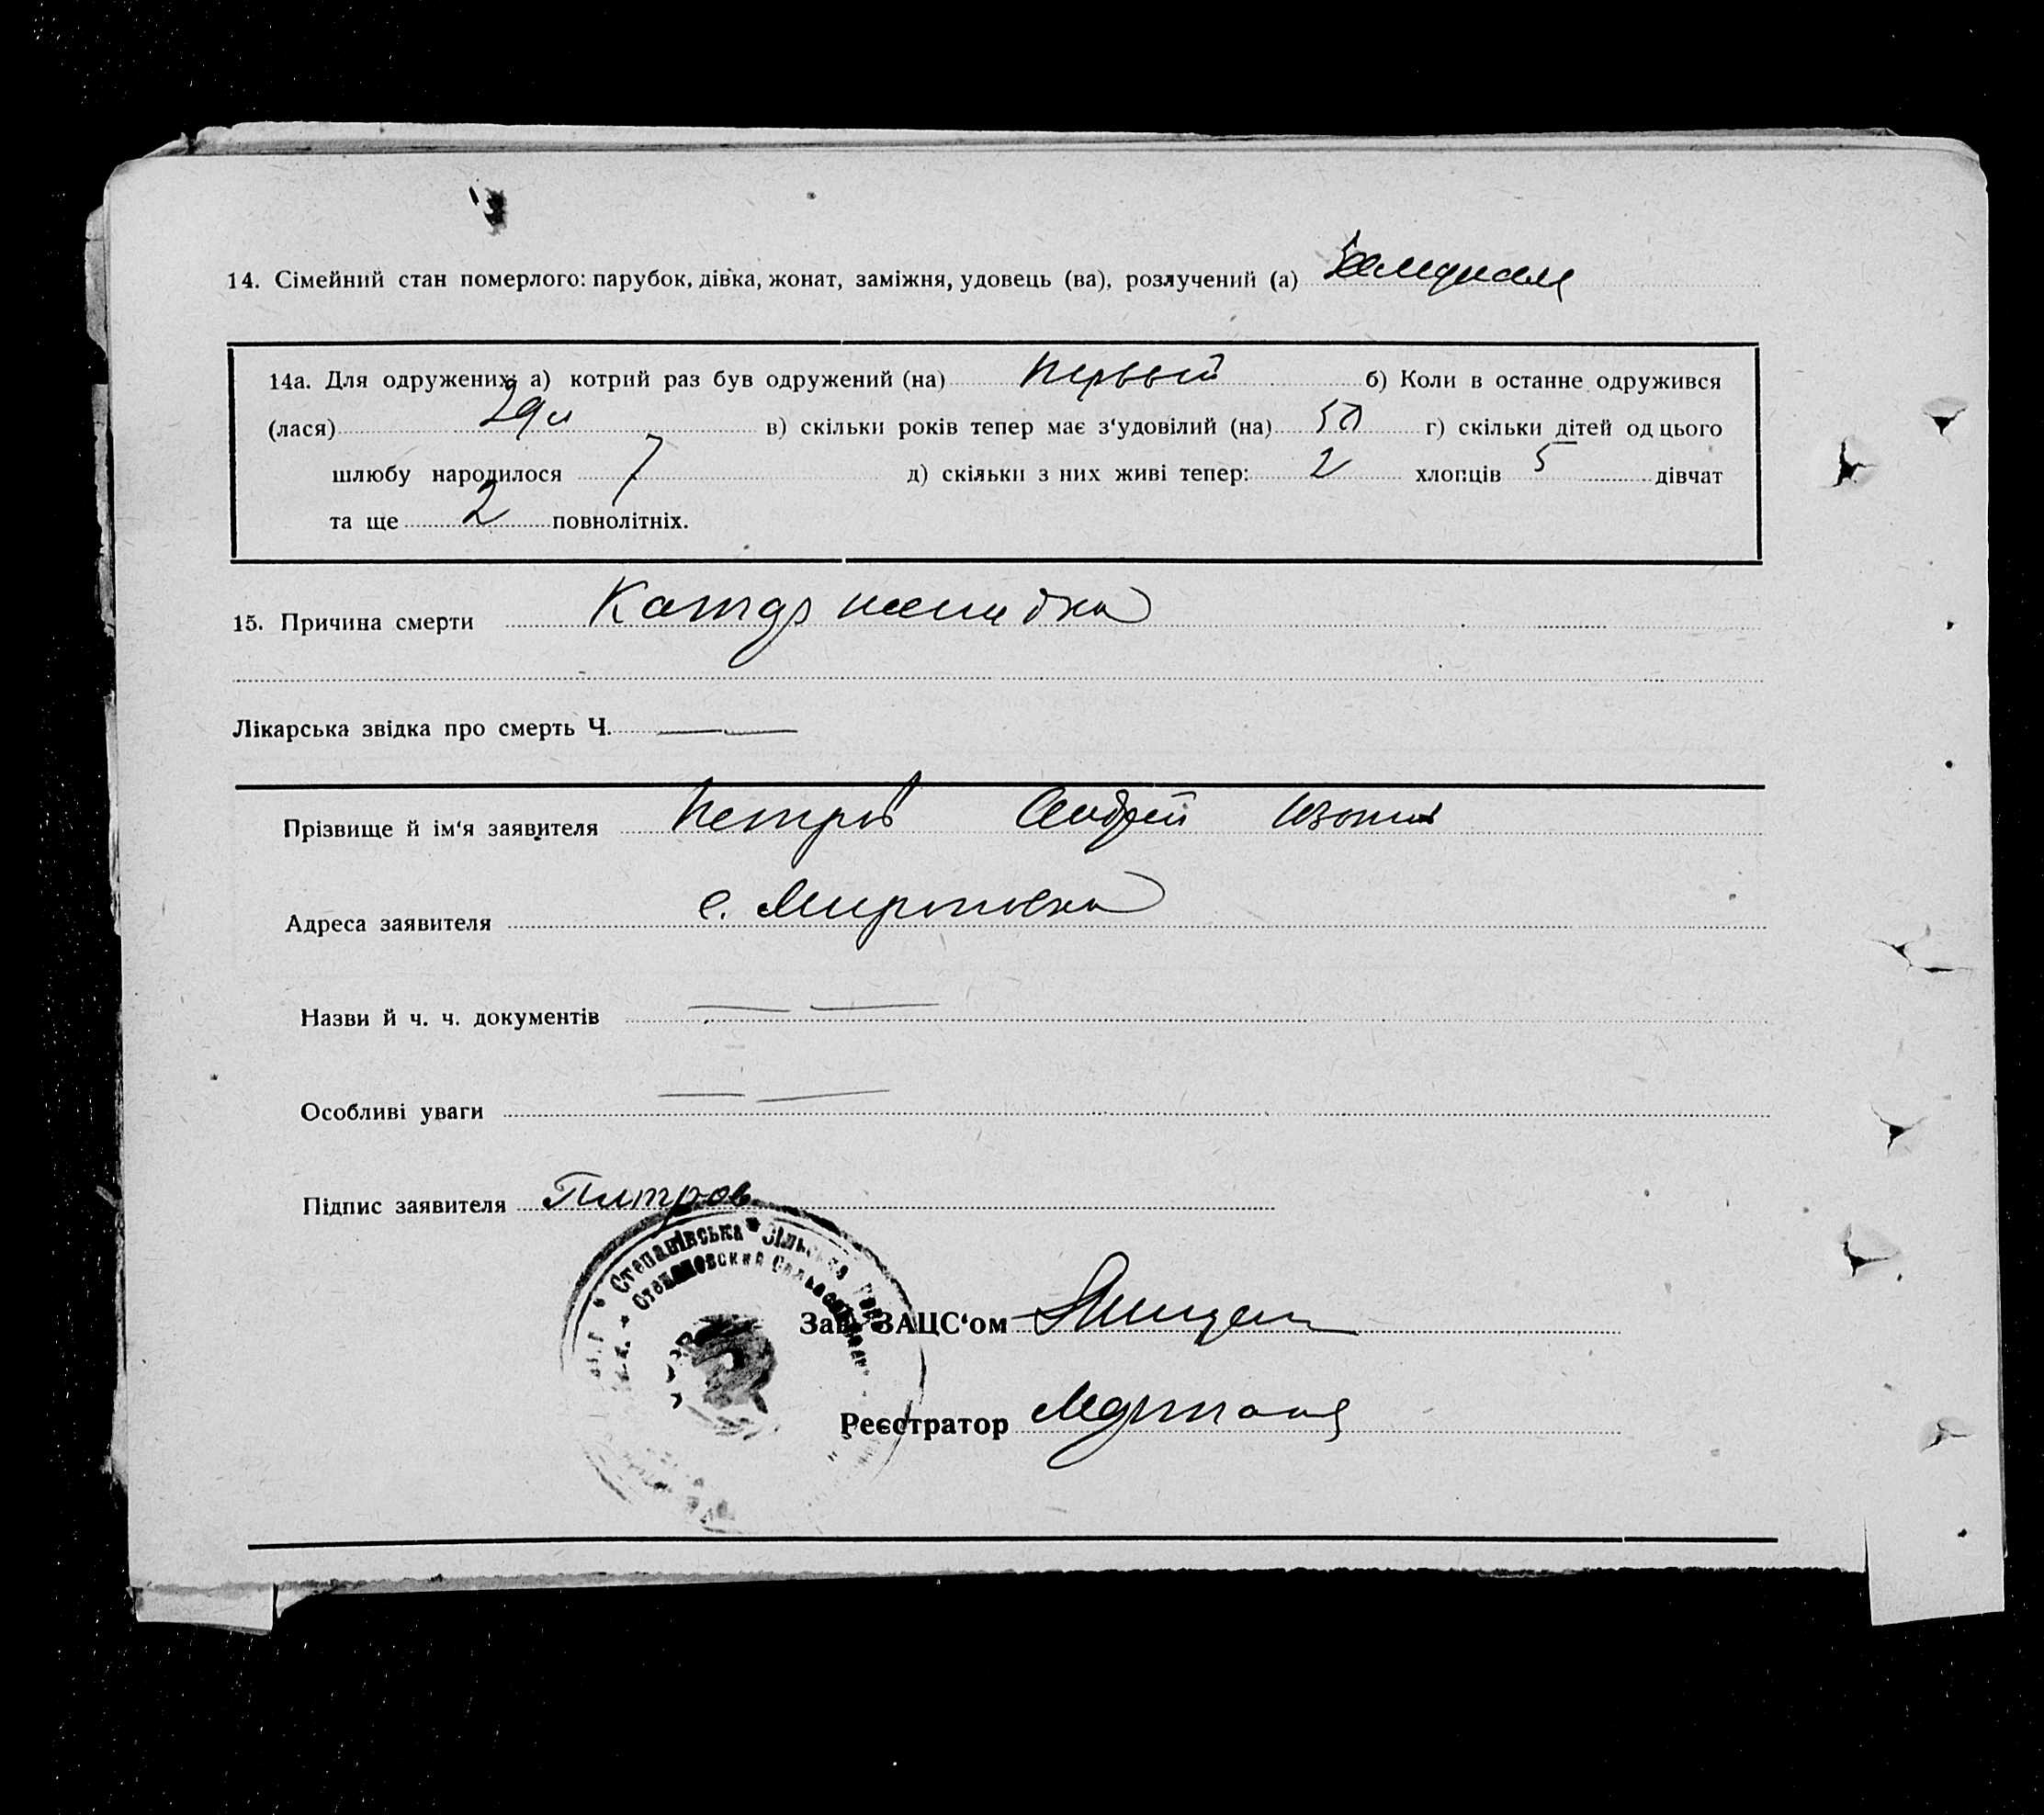 14. Сімейний стан померлого: парубок, дівка, жонат, заміжня, удовець (ва), розлучений (а)
14а. Для одружених: а) котрий раз був одружений (на) первый б) Коли в останне одружився
(лася) в) скільки років тепер має з‘удовілий (на) 50 г) скільки дітей од цього
шлюбу народилося 7 д) скільки з них живі тепер: 2 хлопців 5 дівчат
та ще 2 повнолітніх.
15. Причина смерти Катар желудка
Лікарська звідка про смерть Ч.
Прізвище й ім‘я заявителя Петров Андрей
Адреса заявителя с. Мироновка
Назви й ч. ч. документів
Особливі уваги
Підпис заявителя Петров
Степанівська Сільська
Степановский Сельсовет
Зав. ЗАЦС‘ом
Реєстратор